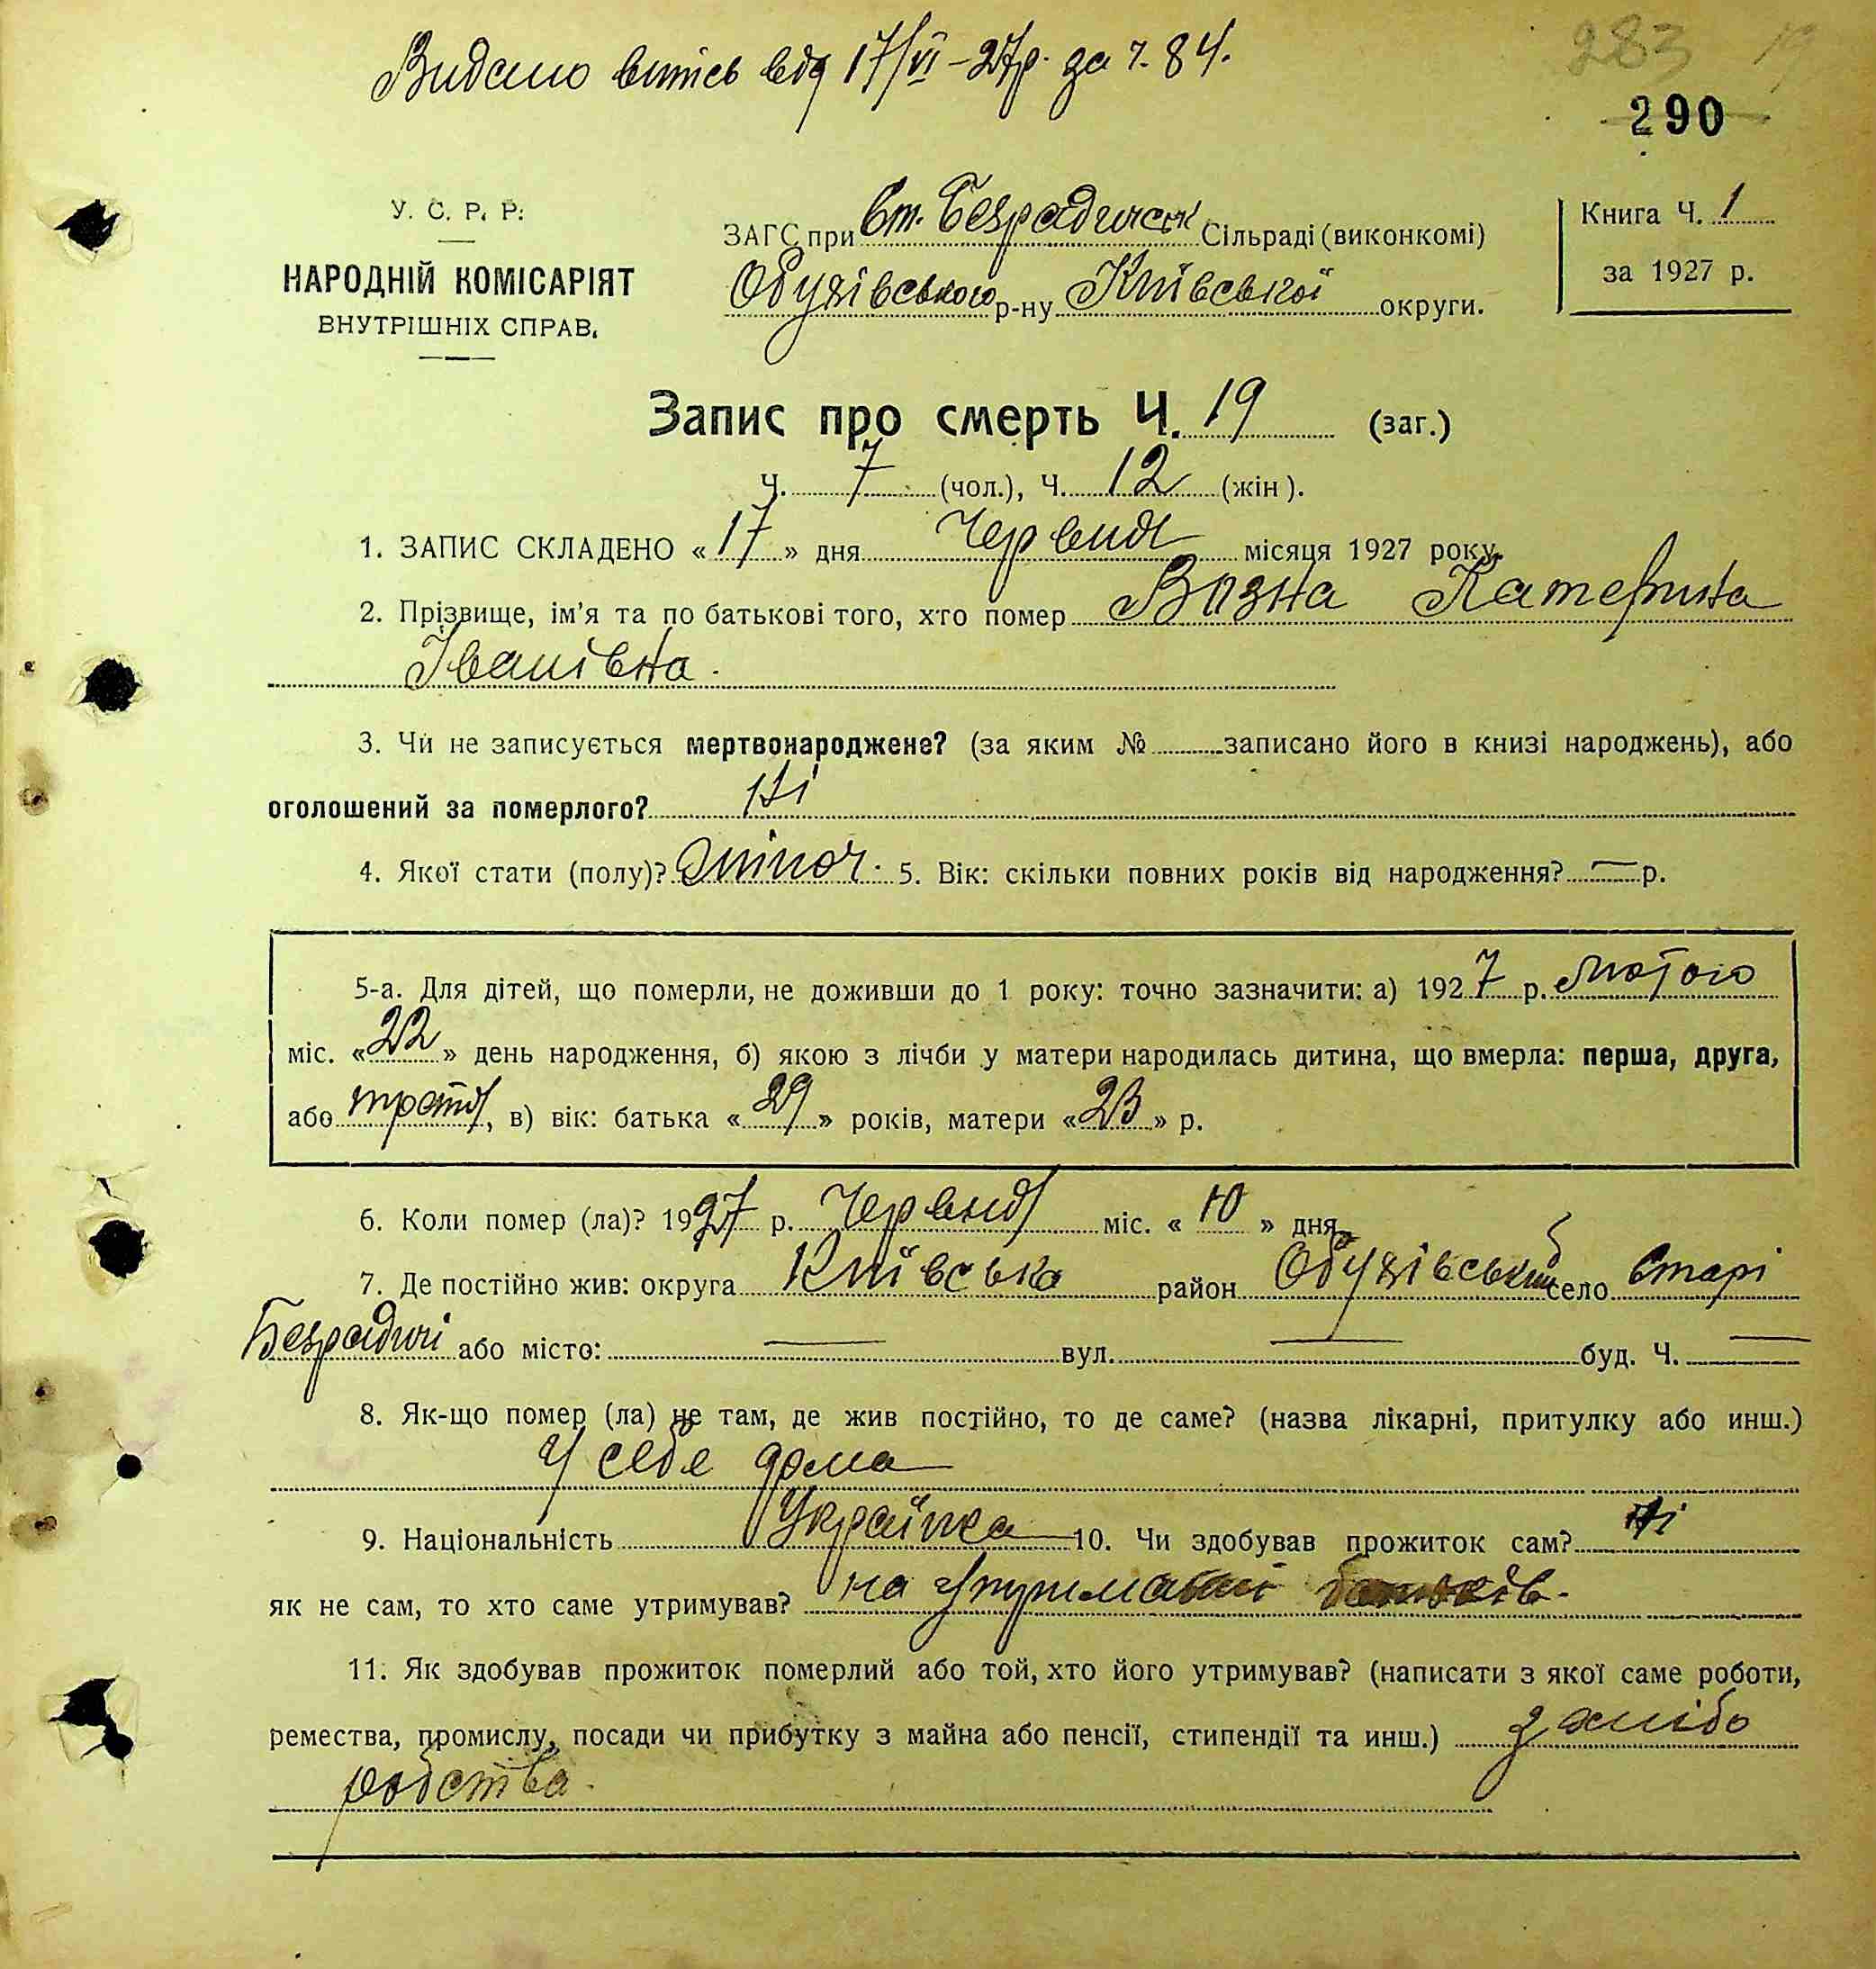 Видано витісь від 17/VI-27р. за ч. 84.
283 19
290
У. С. Р. Р.
НАРОДНІЙ КОМІСАРІЯТ
ВНУТРІШНІХ СПРАВ.
ЗАГС при Ст. Безрадичськ Сільраді (виконкомі)
Обухівського р-ну Київської округи.
Книга Ч. 1
за 1927 р.
Запис про смерть Ч. 19 (заг.)
Ч. 7 (чол.), Ч. 12 (жін).
1. ЗАПИС СКЛАДЕНО «17» дня Червня місяця 1927 року.
2. Прізвище, ім'я та по батькові того, хто помер Возна Катерина
Іванівна.
3. Чи не записується мертвонароджене? (за яким № записано його в книзі народжень), або
оголошений за померлого? Ні
4. Якої стати (полу)? жіноч. 5. Вік: скільки повних років від народження? — р.
5-а. Для дітей, що померли, не доживши до 1 року: точно зазначити: а) 1927 р. Лютого
міс. «22» день народження, б) якою з лічби у матери народилась дитина, що вмерла: перша, друга,
або третя, в) вік: батька «29» років, матери «23» р.
6. Коли помер (ла)? 1927 р. Червня міс. «10» дня
7. Де постійно жив: округа Київська район Обухівський село Старі
Безрадичі або місто: — вул. — буд. Ч. —
8. Як-що помер (ла) не там, де жив постійно, то де саме? (назва лікарні, притулку або инш.)
У себе дома
9. Національність Українка 10. Чи здобував прожиток сам? Ні
як не сам, то хто саме утримував? на утриманні батьків.
11. Як здобував прожиток померлий або той, хто його утримував? (написати з якої саме роботи,
ремества, промислу, посади чи прибутку з майна або пенсії, стипендії та инш.) з хлібо
робства.